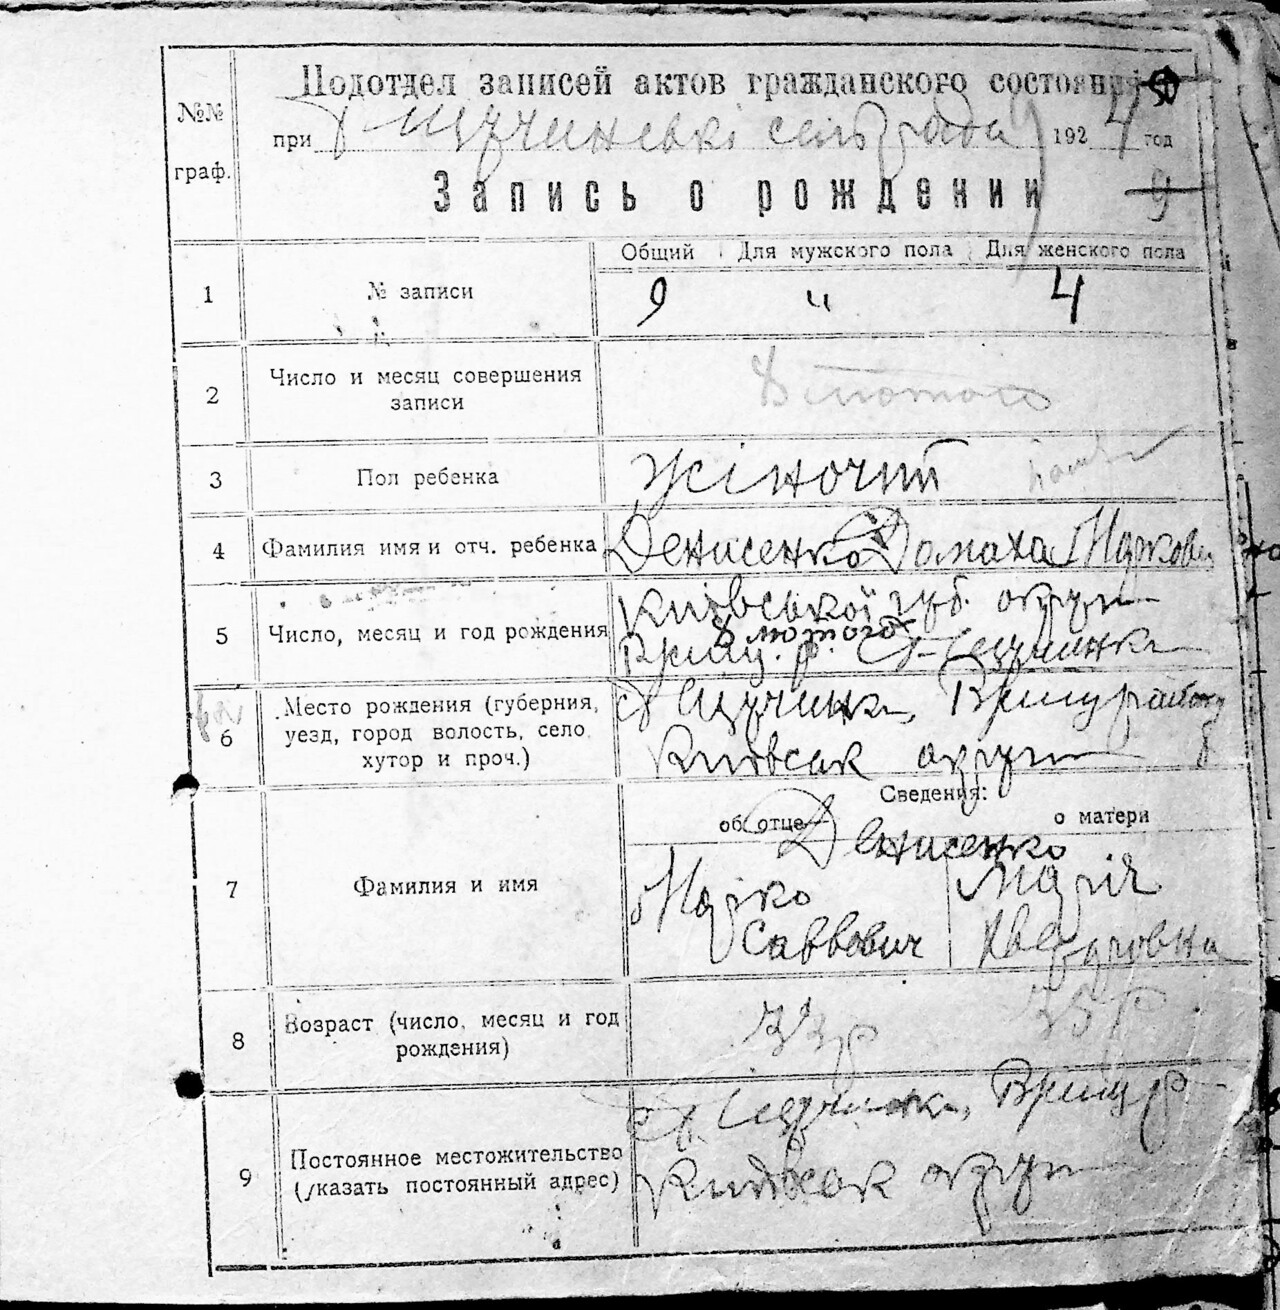 №№ граф.
Подотдел записей актов гражданского состояния
при Щучинські сельрада 1924 год
Запись о рождении
9
Общий Для мужского пола Для женского пола
1 № записи 9 " 4
2 Число и месяц совершения записи 8 лютого
3 Пол ребенка Жіночий
4 Фамилия имя и отч. ребенка Денисенко Домаха Марковна
5 Число, месяц и год рождения Київської губ. округи
8 лютого
Ржищ. р. с. Щучинка
6 Место рождения (губерния, уезд, город волость, село, хутор и проч.) с Щучинка, Ржищ району
Київськ округи
Сведения:
об отце о матери
Денисенко
7 Фамилия и имя Марко Марія
Саввович
8 Возраст (число, месяц и год рождения) 33 р 35 р
9 Постоянное местожительство (указать постоянный адрес) с. Щучинка, Ржищ р
Київськ округи